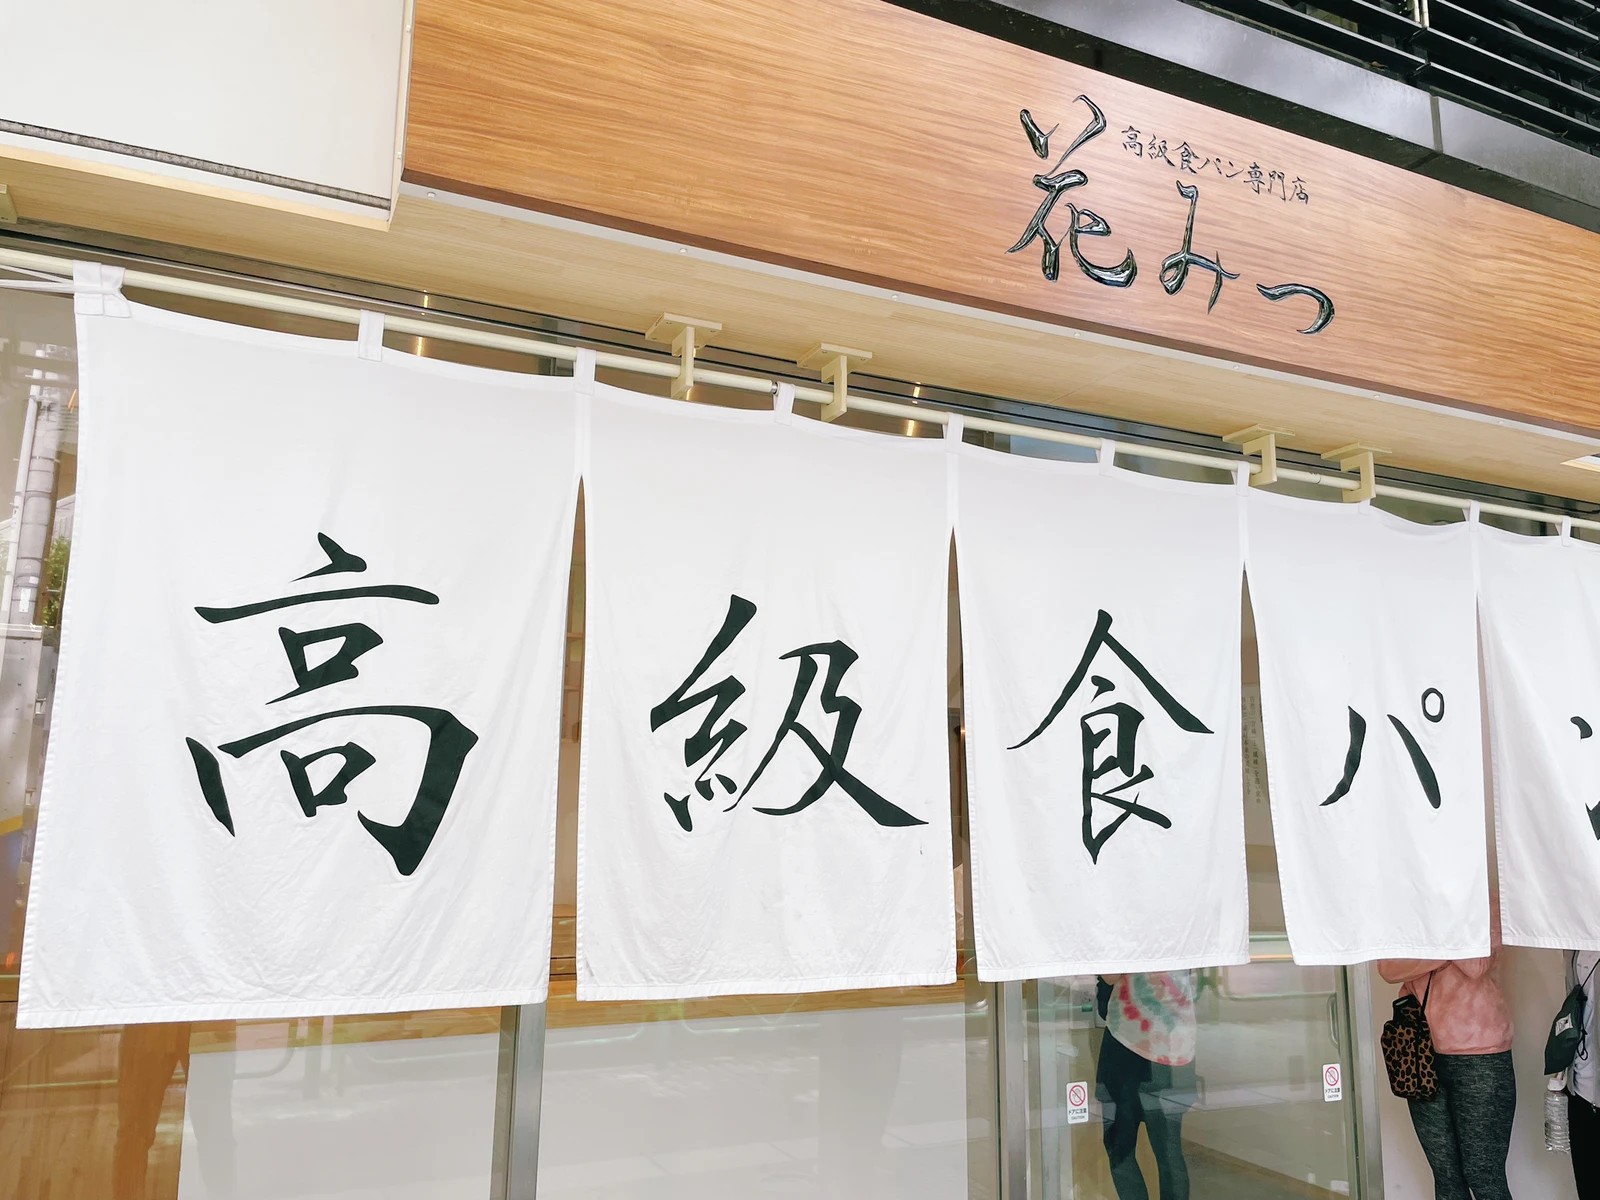 高級食パン専門店
花みつ
高級食パ
ドアに注意
ドアに注意